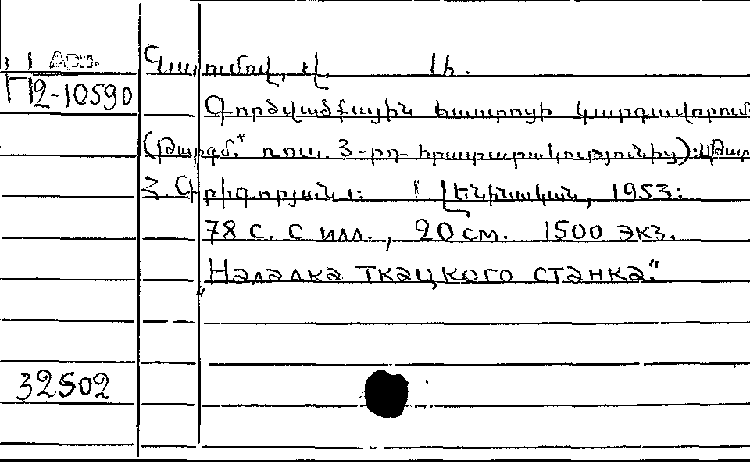 Арм.
П2-10590
Գործվածքային հաստոցի կարգավորում
(Թարգմ. ռուս. 3-րդ հրատարակությունից): Թարգ
Հ. Գրիգորյան: Լենինական, 1953:
78 с. с илл., 20 см. 1500 экз.
"Наладка ткацкого станка."
32502